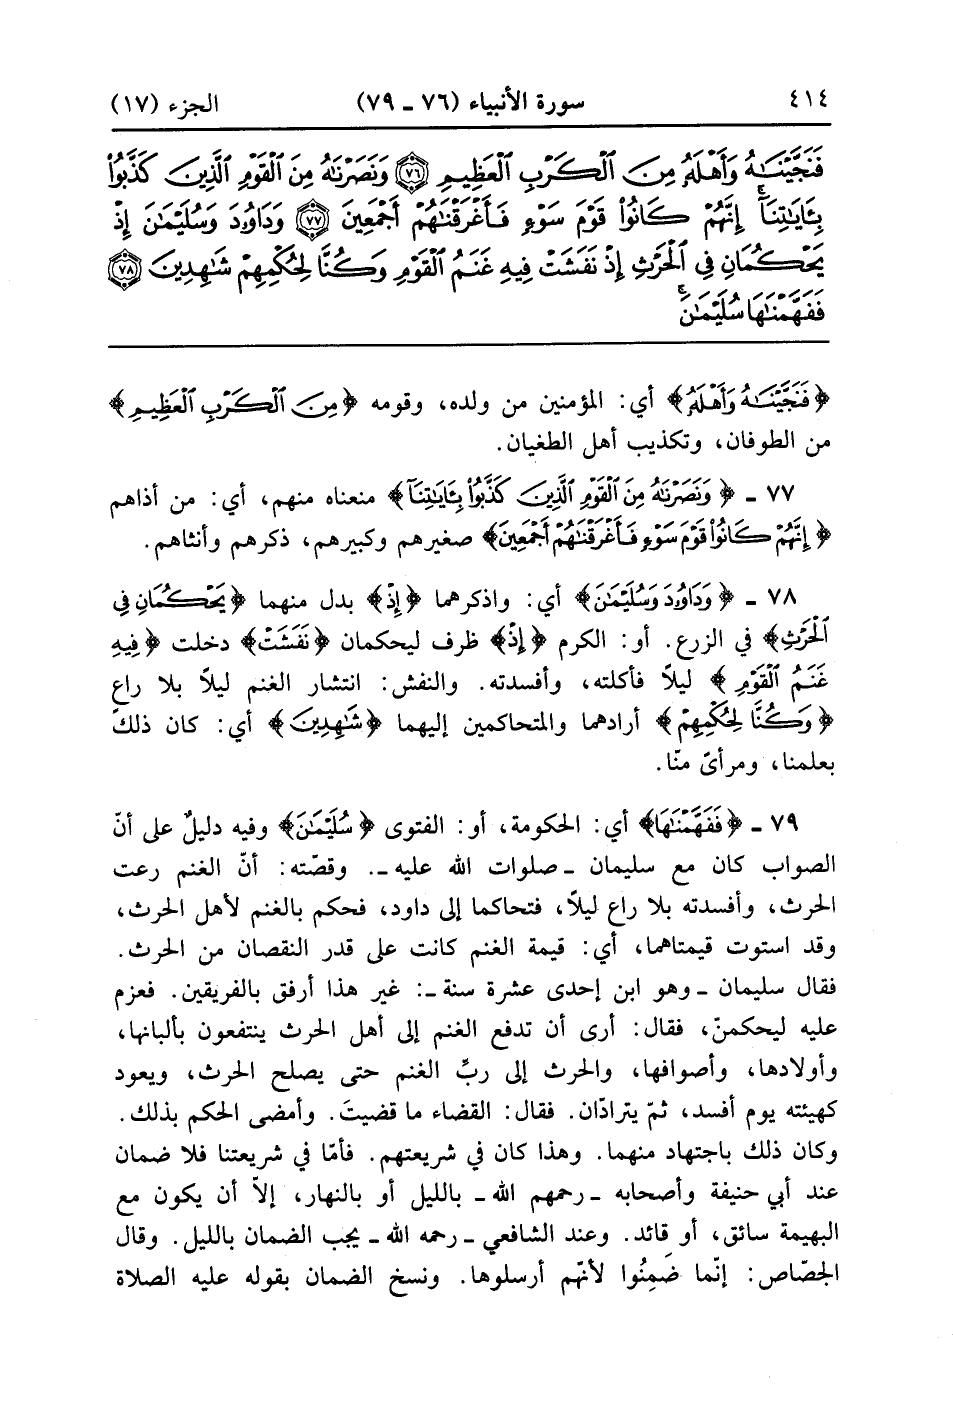 ٤١٤ سورة الأنبياء (٧٦ ـ ٧٩) الجزء (١٧)
فَنَجَّيْنَٰهُ وَأَهْلَهُۥ مِنَ ٱلْكَرْبِ ٱلْعَظِيمِ ﴿٧٦﴾ وَنَصَرْنَٰهُ مِنَ ٱلْقَوْمِ ٱلَّذِينَ كَذَّبُوا۟
بِـَٔايَٰتِنَآ ۚ إِنَّهُمْ كَانُوا۟ قَوْمَ سَوْءٍ فَأَغْرَقْنَٰهُمْ أَجْمَعِينَ ﴿٧٧﴾ وَدَاوُۥدَ وَسُلَيْمَٰنَ إِذْ
يَحْكُمَانِ فِى ٱلْحَرْثِ إِذْ نَفَشَتْ فِيهِ غَنَمُ ٱلْقَوْمِ وَكُنَّا لِحُكْمِهِمْ شَٰهِدِينَ ﴿٧٨﴾
فَفَهَّمْنَٰهَا سُلَيْمَٰنَ ۚ
﴿فَنَجَّيْنَٰهُ وَأَهْلَهُۥ﴾ أي: المؤمنين من ولده، وقومه ﴿مِنَ ٱلْكَرْبِ ٱلْعَظِيمِ﴾
من الطوفان، وتكذيب أهل الطغيان.
٧٧ ـ ﴿وَنَصَرْنَٰهُ مِنَ ٱلْقَوْمِ ٱلَّذِينَ كَذَّبُوا۟ بِـَٔايَٰتِنَآ﴾ منعناه منهم، أي: من أذاهم
﴿إِنَّهُمْ كَانُوا۟ قَوْمَ سَوْءٍ فَأَغْرَقْنَٰهُمْ أَجْمَعِينَ﴾ صغيرهم وكبيرهم، ذكرهم وأنثاهم.
٧٨ ـ ﴿وَدَاوُۥدَ وَسُلَيْمَٰنَ﴾ أي: واذكرهما ﴿إِذْ﴾ بدل منهما ﴿يَحْكُمَانِ فِى
ٱلْحَرْثِ﴾ في الزرع. أو: الكرم ﴿إِذْ﴾ ظرف ليحكمان ﴿نَفَشَتْ﴾ دخلت ﴿فِيهِ
غَنَمُ ٱلْقَوْمِ﴾ ليلاً فأكلته، وأفسدته. والنفش: انتشار الغنم ليلاً بلا راعٍ
﴿وَكُنَّا لِحُكْمِهِمْ﴾ أرادهما والمتحاكمين إليهما ﴿شَٰهِدِينَ﴾ أي: كان ذلك
بعلمنا، ومرأىً منّا.
٧٩ ـ ﴿فَفَهَّمْنَٰهَا﴾ أي: الحكومة، أو: الفتوى ﴿سُلَيْمَٰنَ﴾ وفيه دليلٌ على أنّ
الصواب كان مع سليمان ـ صلوات الله عليه ـ. وقصّته: أنّ الغنم رعت
الحرث، وأفسدته بلا راع ليلاً، فتحاكما إلى داود، فحكم بالغنم لأهل الحرث،
وقد استوت قيمتاهما، أي: قيمة الغنم كانت على قدر النقصان من الحرث.
فقال سليمان ـ وهو ابن إحدى عشرة سنة ـ: غير هذا أرفق بالفريقين. فعزم
عليه ليحكمنّ، فقال: أرى أن تدفع الغنم إلى أهل الحرث ينتفعون بألبانها،
وأولادها، وأصوافها، والحرث إلى ربِّ الغنم حتى يصلح الحرث، ويعود
كهيئته يوم أفسد، ثمّ يترادّان. فقال: القضاء ما قضيتَ. وأمضى الحكم بذلك.
وكان ذلك باجتهاد منهما. وهذا كان في شريعتهم. فأمّا في شريعتنا فلا ضمان
عند أبي حنيفة وأصحابه ـ رحمهم الله ـ بالليل أو بالنهار، إلاّ أن يكون مع
البهيمة سائق، أو قائد. وعند الشافعي ـ رحمه الله ـ يجب الضمان بالليل. وقال
الجصّاص: إنّما ضَمِنُوا لأنّهم أرسلوها. ونسخ الضمان بقوله عليه الصلاة